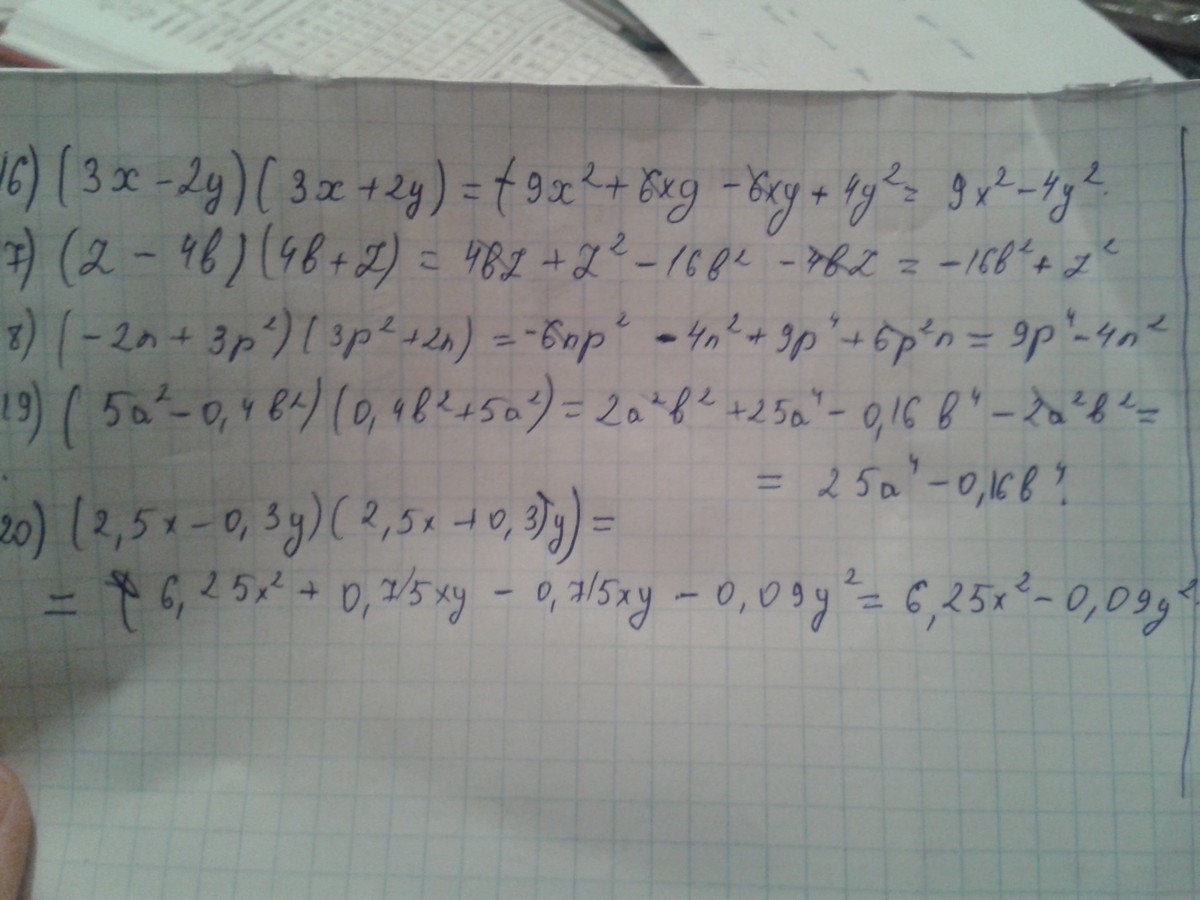 16) (3x - 2y)(3x + 2y) = 9x² + 6xy - 6xy + 4y² = 9x² - 4y².
7) (Z - 4b)(4b + Z) = 4bZ + Z² - 16b² - 4bZ = -16b² + Z²
8) (-2n + 3p²)(3p² + 2n) = -6np² - 4n² + 9p⁴ + 6p²n = 9p⁴ - 4n²
19) (5a² - 0,4b²)(0,4b² + 5a²) = 2a²b² + 25a⁴ - 0,16b⁴ - 2a²b² =
= 25a⁴ - 0,16b⁴.
20) (2,5x - 0,3y)(2,5x + 0,3y) =
= 6,25x² + 0,75xy - 0,75xy - 0,09y² = 6,25x² - 0,09y².